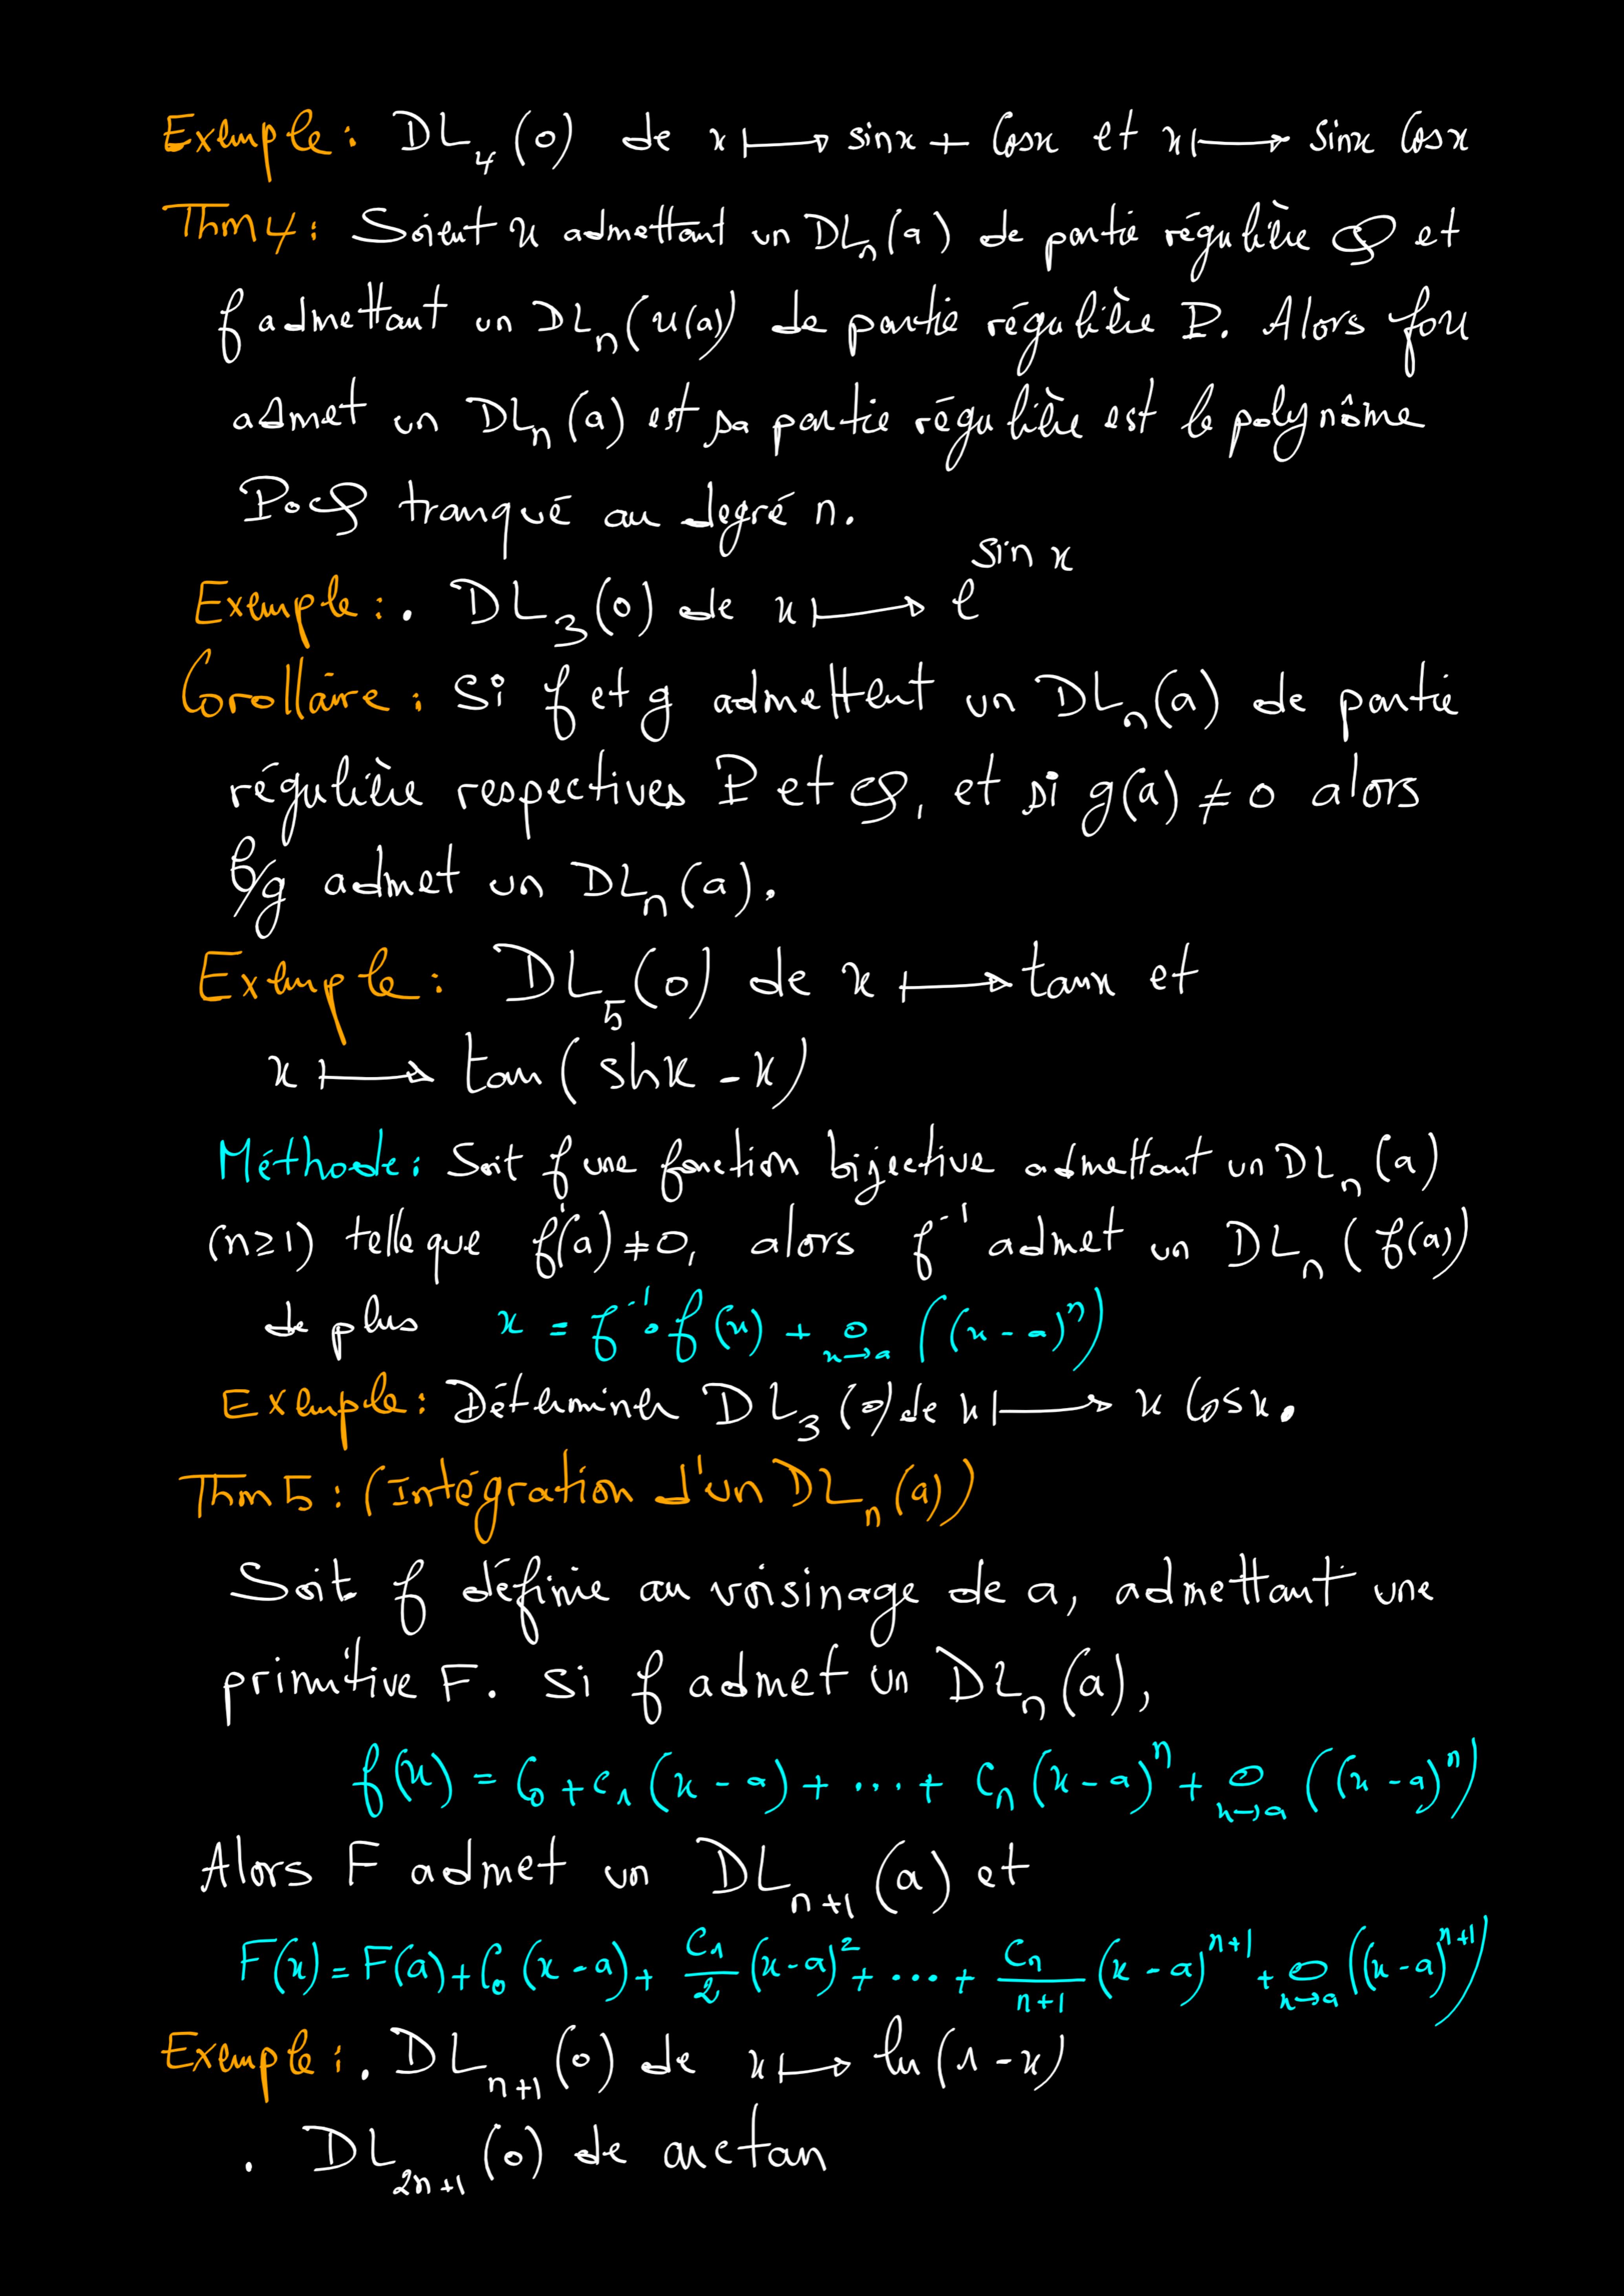 Exemple : DL₄(0) de x ⟼ sinx + Cosx et x ⟼ sinx Cosx
Thm4 : Soient u admettant un DLₙ(a) de partie régulière Q et
f admettant un DLₙ(u(a)) de partie régulière P. Alors fou
admet un DLₙ(a) est sa partie régulière est le polynôme
PoQ tranqué au degré n.
Exemple : . DL₃(0) de x ⟼ e^{sin x}
Corollaire : Si f et g admettent un DLₙ(a) de partie
régulière respectives P et Q, et si g(a) ≠ 0 alors
f/g admet un DLₙ(a).
Exemple : DL₅(0) de x ⟼ tanx et
x ⟼ tan(shx - x)
Méthode : Soit f une fonction bijective admettant un DLₙ(a)
(n≥1) telle que f'(a) ≠ 0, alors f⁻¹ admet un DLₙ(f(a))
de plus x = f⁻¹∘f(x) + o_{x→a}((x-a)ⁿ)
Exemple : Déterminer DL₃(0) de x ⟼ x Cosx.
Thm5 : (Intégration d'un DLₙ(a))
Soit f définie au voisinage de a, admettant une
primitive F. si f admet un DLₙ(a),
f(x) = C₀ + C₁(x - a) + ... + Cₙ(x-a)ⁿ + o_{x→a}((x-a)ⁿ)
Alors F admet un DLₙ₊₁(a) et
F(x) = F(a) + C₀(x-a) + C₁/2 (x-a)² + ... + Cₙ/(n+1) (x-a)ⁿ⁺¹ + o_{x→a}((x-a)ⁿ⁺¹)
Exemple : . DLₙ₊₁(0) de x ⟼ ln(1-x)
. DL₂ₙ₊₁(0) de arctan